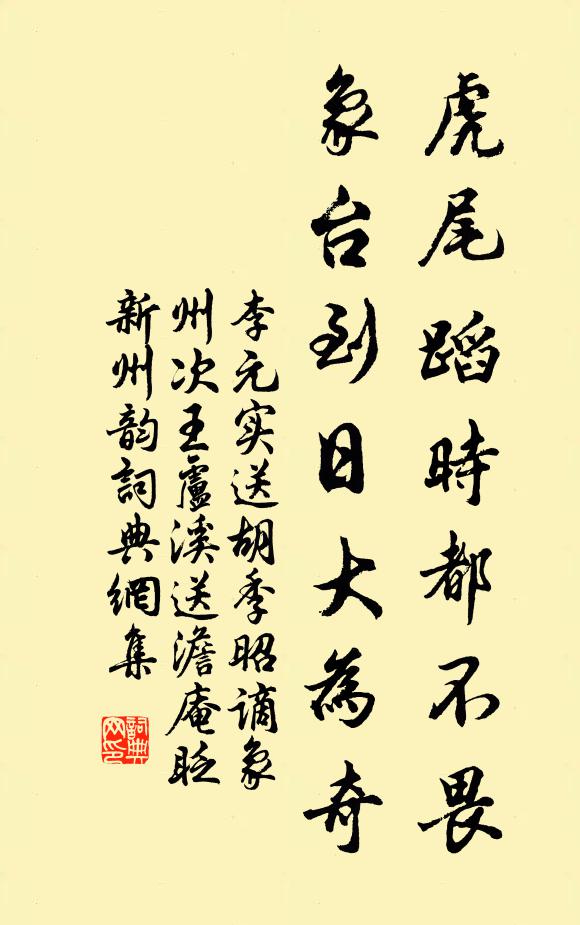 虎尾蹈時都不畏
象台到日大為奇
李元实送胡季昭謫象
州次王盧溪送澹庵貶
新州韵詞典網集
詞典網印